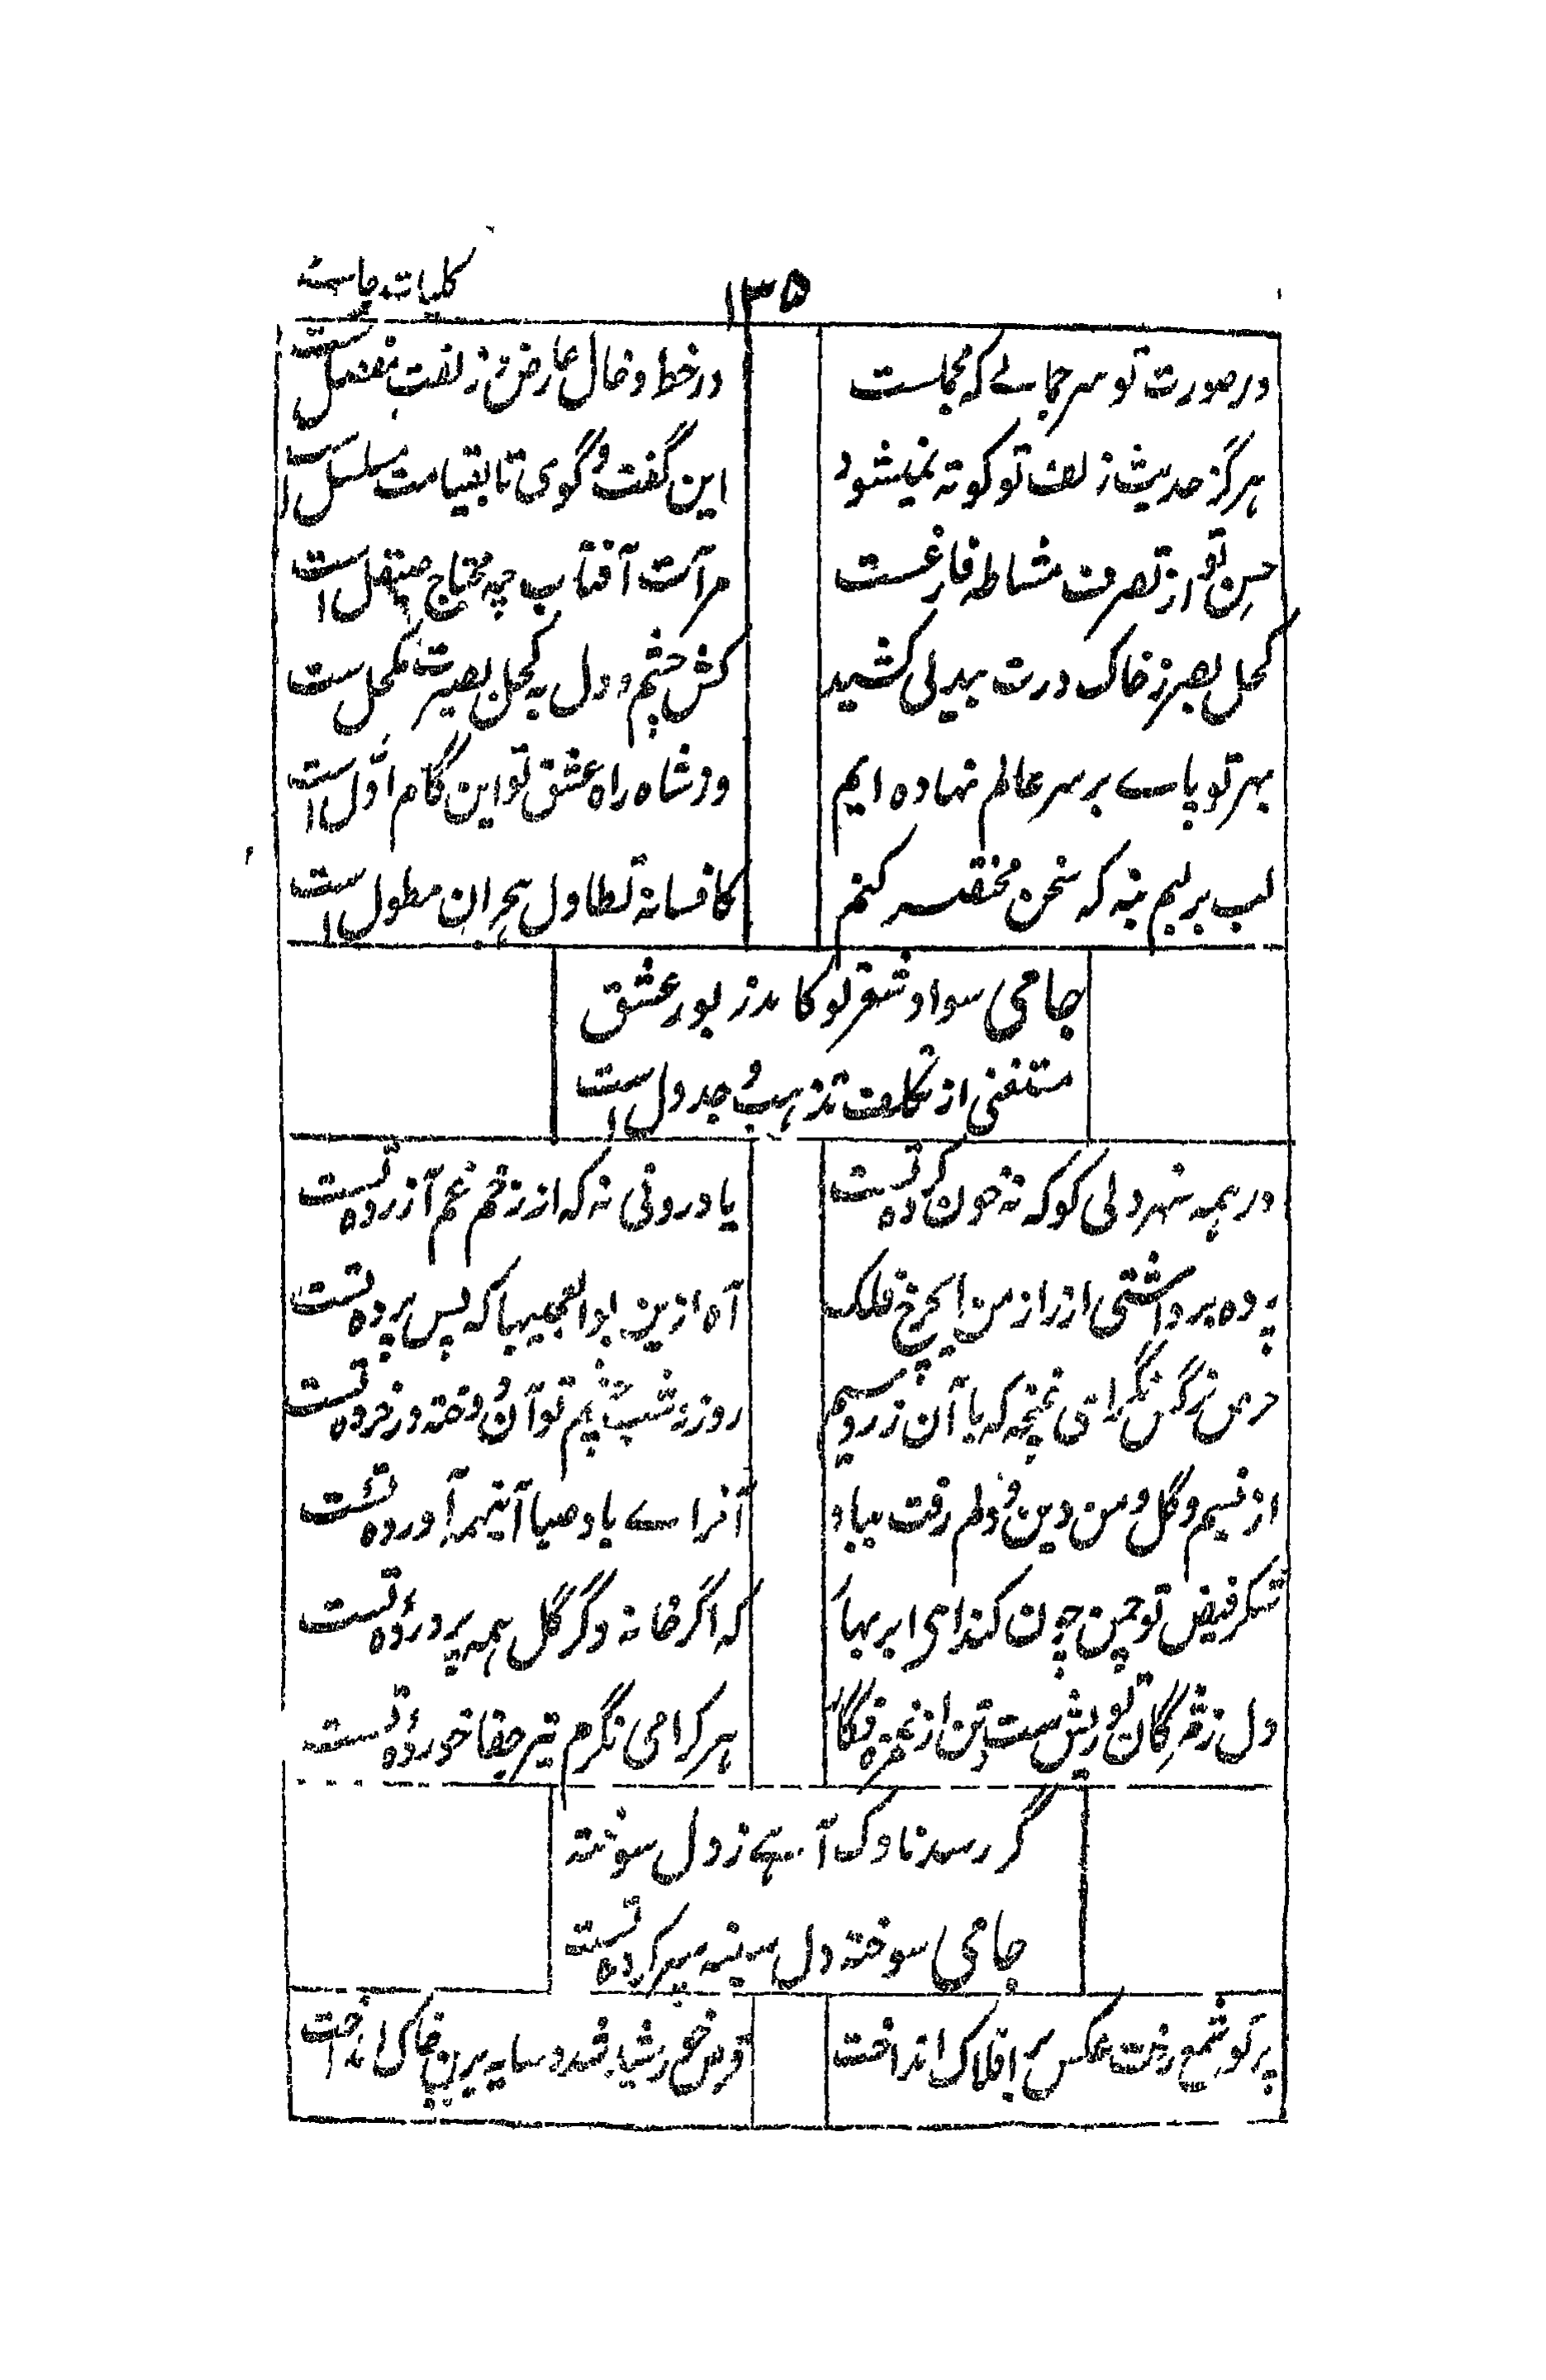 کلیات جامی
۱۳۵
در صورت تو سر جمالے که مجملست
در خط و خال عارض و زلفت مفصل ست
هرگز حدیث زلف تو کوته نمیشود
این گفت و گوی تا بقیامت مسلسل است
حسن تو از تصرف مشاطه فارغست
مرآت آفتاب چه محتاج صیقل است
کحل بصر ز خاک درت بیدلی کشید
کش چشم و دل به کحل بصیرت مکحل ست
بهر تو پاے بر سر عالم نهاده ایم
در شاه راه عشق تو این گام اول است
لب بر لبم بنه که سخن مختصر کنم
کافسانه تطاول هجران مطول است
جامی سواد شعر تو کامد زبور عشق
مستغنی از تکلف تذهیب و جدول است
در همه شهر دلی کو که نه خون کرده تست
یا درونی نه که از زخم غم آزرده تست
پرده برداشتی از راز من ای چرخ فلک
آه ازین بوالعجبیها که پس پرده تست
نرگس نگر ای غنچه که با آن زر و سیم
روز و شب چشم تو آن دوخته در خرده تست
از نسیم گل و من دین و دلم رفت بباد
آنرا اے باد صبا اینهمه آورده تست
شکر فیض تو چمن چون کند ای ابر بهار
که اگر خار و گر گل همه پرورده تست
دل ز مژگان تو ریش ست و تن از غمزه فگار
هر کرا می نگرم تیر جفا خورده تست
گر رسد ناوک آهے ز دل سوخته
جامی سوخته دل سینه سپر کرده تست
پرتو شمع رخت عکس بر افلاک انداخت
قرص خورشید شد و سایه برین خاک انداخت